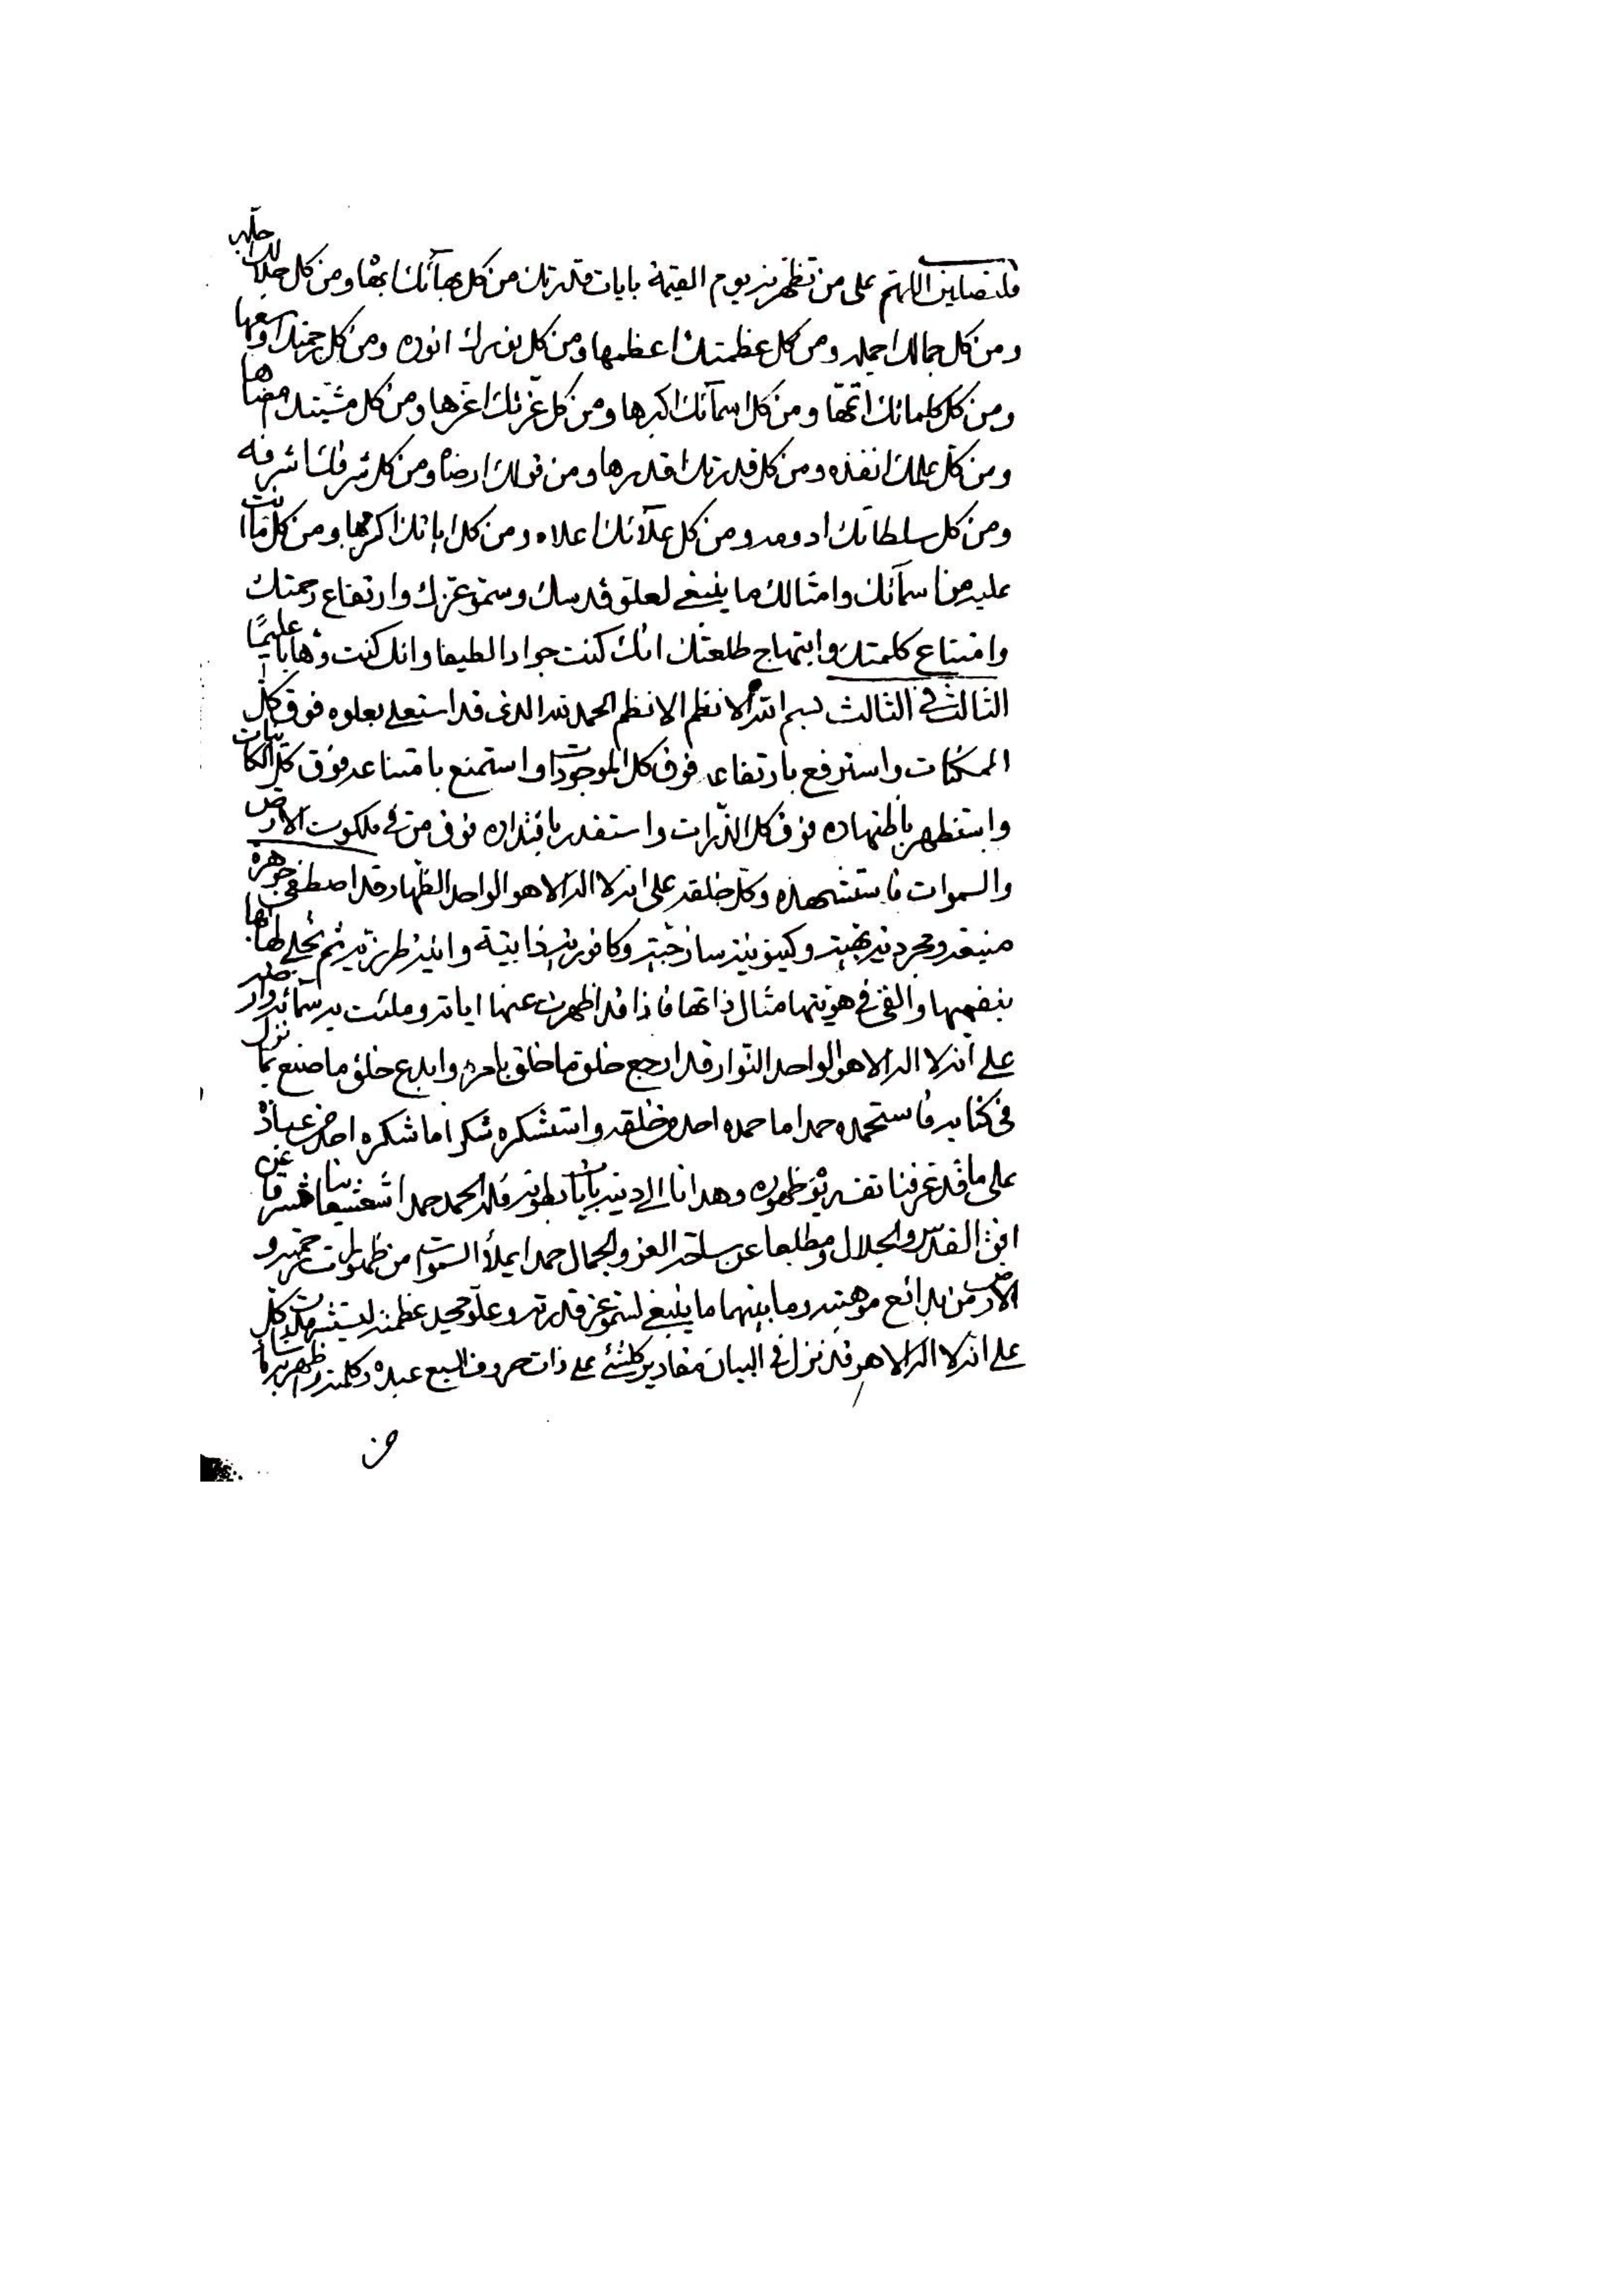 فلتصلين اللهم على من تظهرنه يوم القيمة بايات قدرتك من كل بهآئك ابهاه ومن كل جلالك اجله
ومن كل جمالك اجمله ومن كل عظمتك اعظمها ومن كل نورك انوره ومن كل رحمتك اوسعها
ومن كل كلماتك اتمها ومن كل اسمآئك اكبرها ومن كل عزتك اعزها ومن كل مشيتك امضاها
ومن كل علمك انفذه ومن كل قدرتك اقدرها ومن قولك ارضاه ومن كل شرفك اشرفه
ومن كل سلطانك ادومه ومن كل علآئك اعلاه ومن كل اياتك اكرمها ومن كل ما انت
عليه من اسمآئك وامثالك ما ينبغي لعلو قدسك وسمو عزك وارتفاع رحمتك
وامتناع كلمتك وابتهاج طلعتك انك كنت جوادا لطيفا وانك كنت وهابا عليما
الثالث في الثالث بسم الله الانظم الانظم الحمد لله الذي قد استعلى بعلوه فوق كل
الممكنات واسترفع بارتفاعه فوق كل الموجودات واستمنع بامتناعه فوق كل الكائنات
واستظهر باظتهاره فوق كل الذرات واستقدر باقتداره فوق من في ملكوت الارض
والسموات فاستشهده وكل خلقه على انه لا اله الا هو الواحد الظهار قد اصطفى جوهرة
منيعة ومجردية بهية وكينونية ساذجية وكافورية ذاتية وانية طرزية ثم تجلى لها بها
بنفسها والقى في هويتها مثال ذاتها فاذا قد اظهرت عنها اياته وملئت به سمائه وارضه
على انه لا اله الا هو الواحد النوار قد ارجع خلق ما خلق بامره وابدع خلق ما صنع بما نزل
في كتابه فاستحمده حمدا ما حمده احد من خلقه واستشكره شكرا ما شكره احد من عباده
على ما قد عرفنا نفسه يوم ظهوره وهدانا الى دينه بايات بطونه فله الحمد حمدا شعشعانيا مشرقا عن
افق القدس والجلال ومطلعا عن ساحة العز والجمال حمدا يملأ السموات من ظهورات رحمته و
الارض من بدائع موهبته وما بينهما ما ينبغي لسمو عز قدرته وعلو مجد عظمته ليستشهدن كل
على انه لا اله الا هو قد نزل في البيان مقادير كلشئ على ذات حروف السبع عبده وكلمته واظهر به ما
من